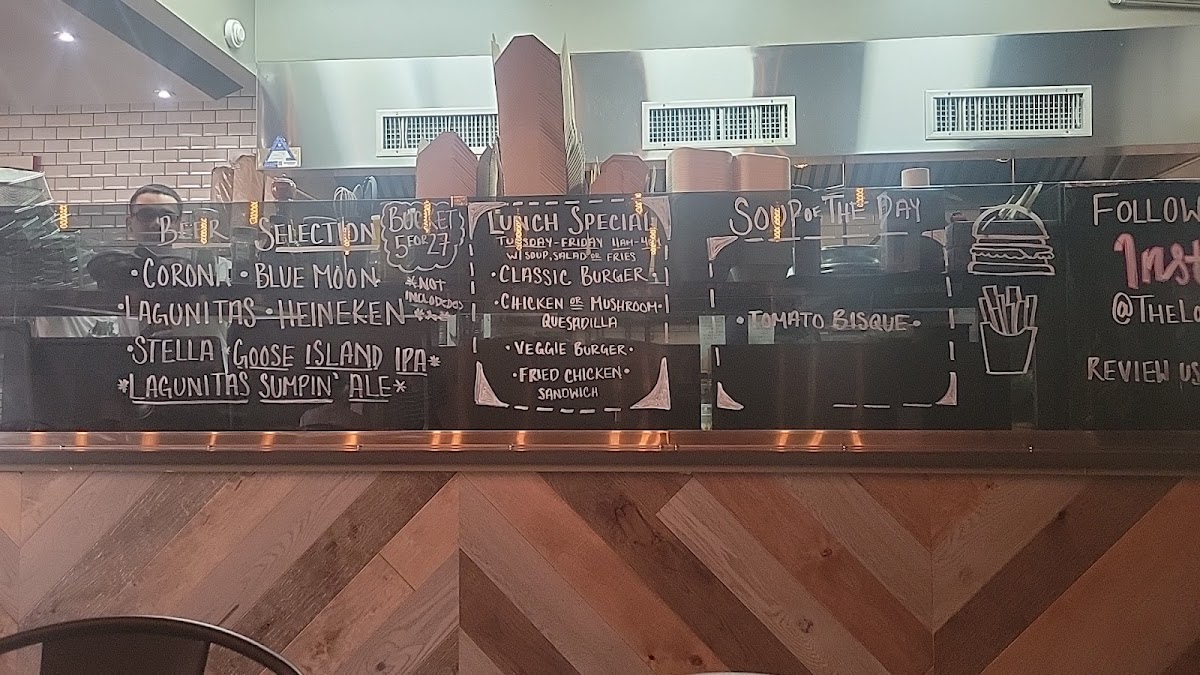 BEER SELECTION
BUCKET
5 FOR 27
• CORONA • BLUE MOON
*NOT
• LAGUNITAS • HEINEKEN
• STELLA • GOOSE ISLAND IPA*
*LAGUNITAS SUMPIN' ALE*
LUNCH SPECIAL
TUESDAY-FRIDAY 11AM-4PM
W/ SOUP, SALAD OR FRIES
• CLASSIC BURGER •
• CHICKEN OR MUSHROOM •
QUESADILLA
• VEGGIE BURGER •
• FRIED CHICKEN •
SANDWICH
SOUP OF THE DAY
• TOMATO BISQUE •
FOLLOW
Inst
@THELO
REVIEW US